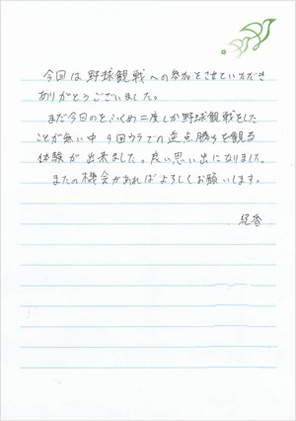 今回は野球観戦への参加をさせていただき
ありがとうございました。
まだ今回のをふくめ二度しか野球観戦をした
ことが無い中9回ウラでの逆点勝ちを観る
体験が出来ました。良い思い出になりました。
またの機会があればよろしくお願いします。